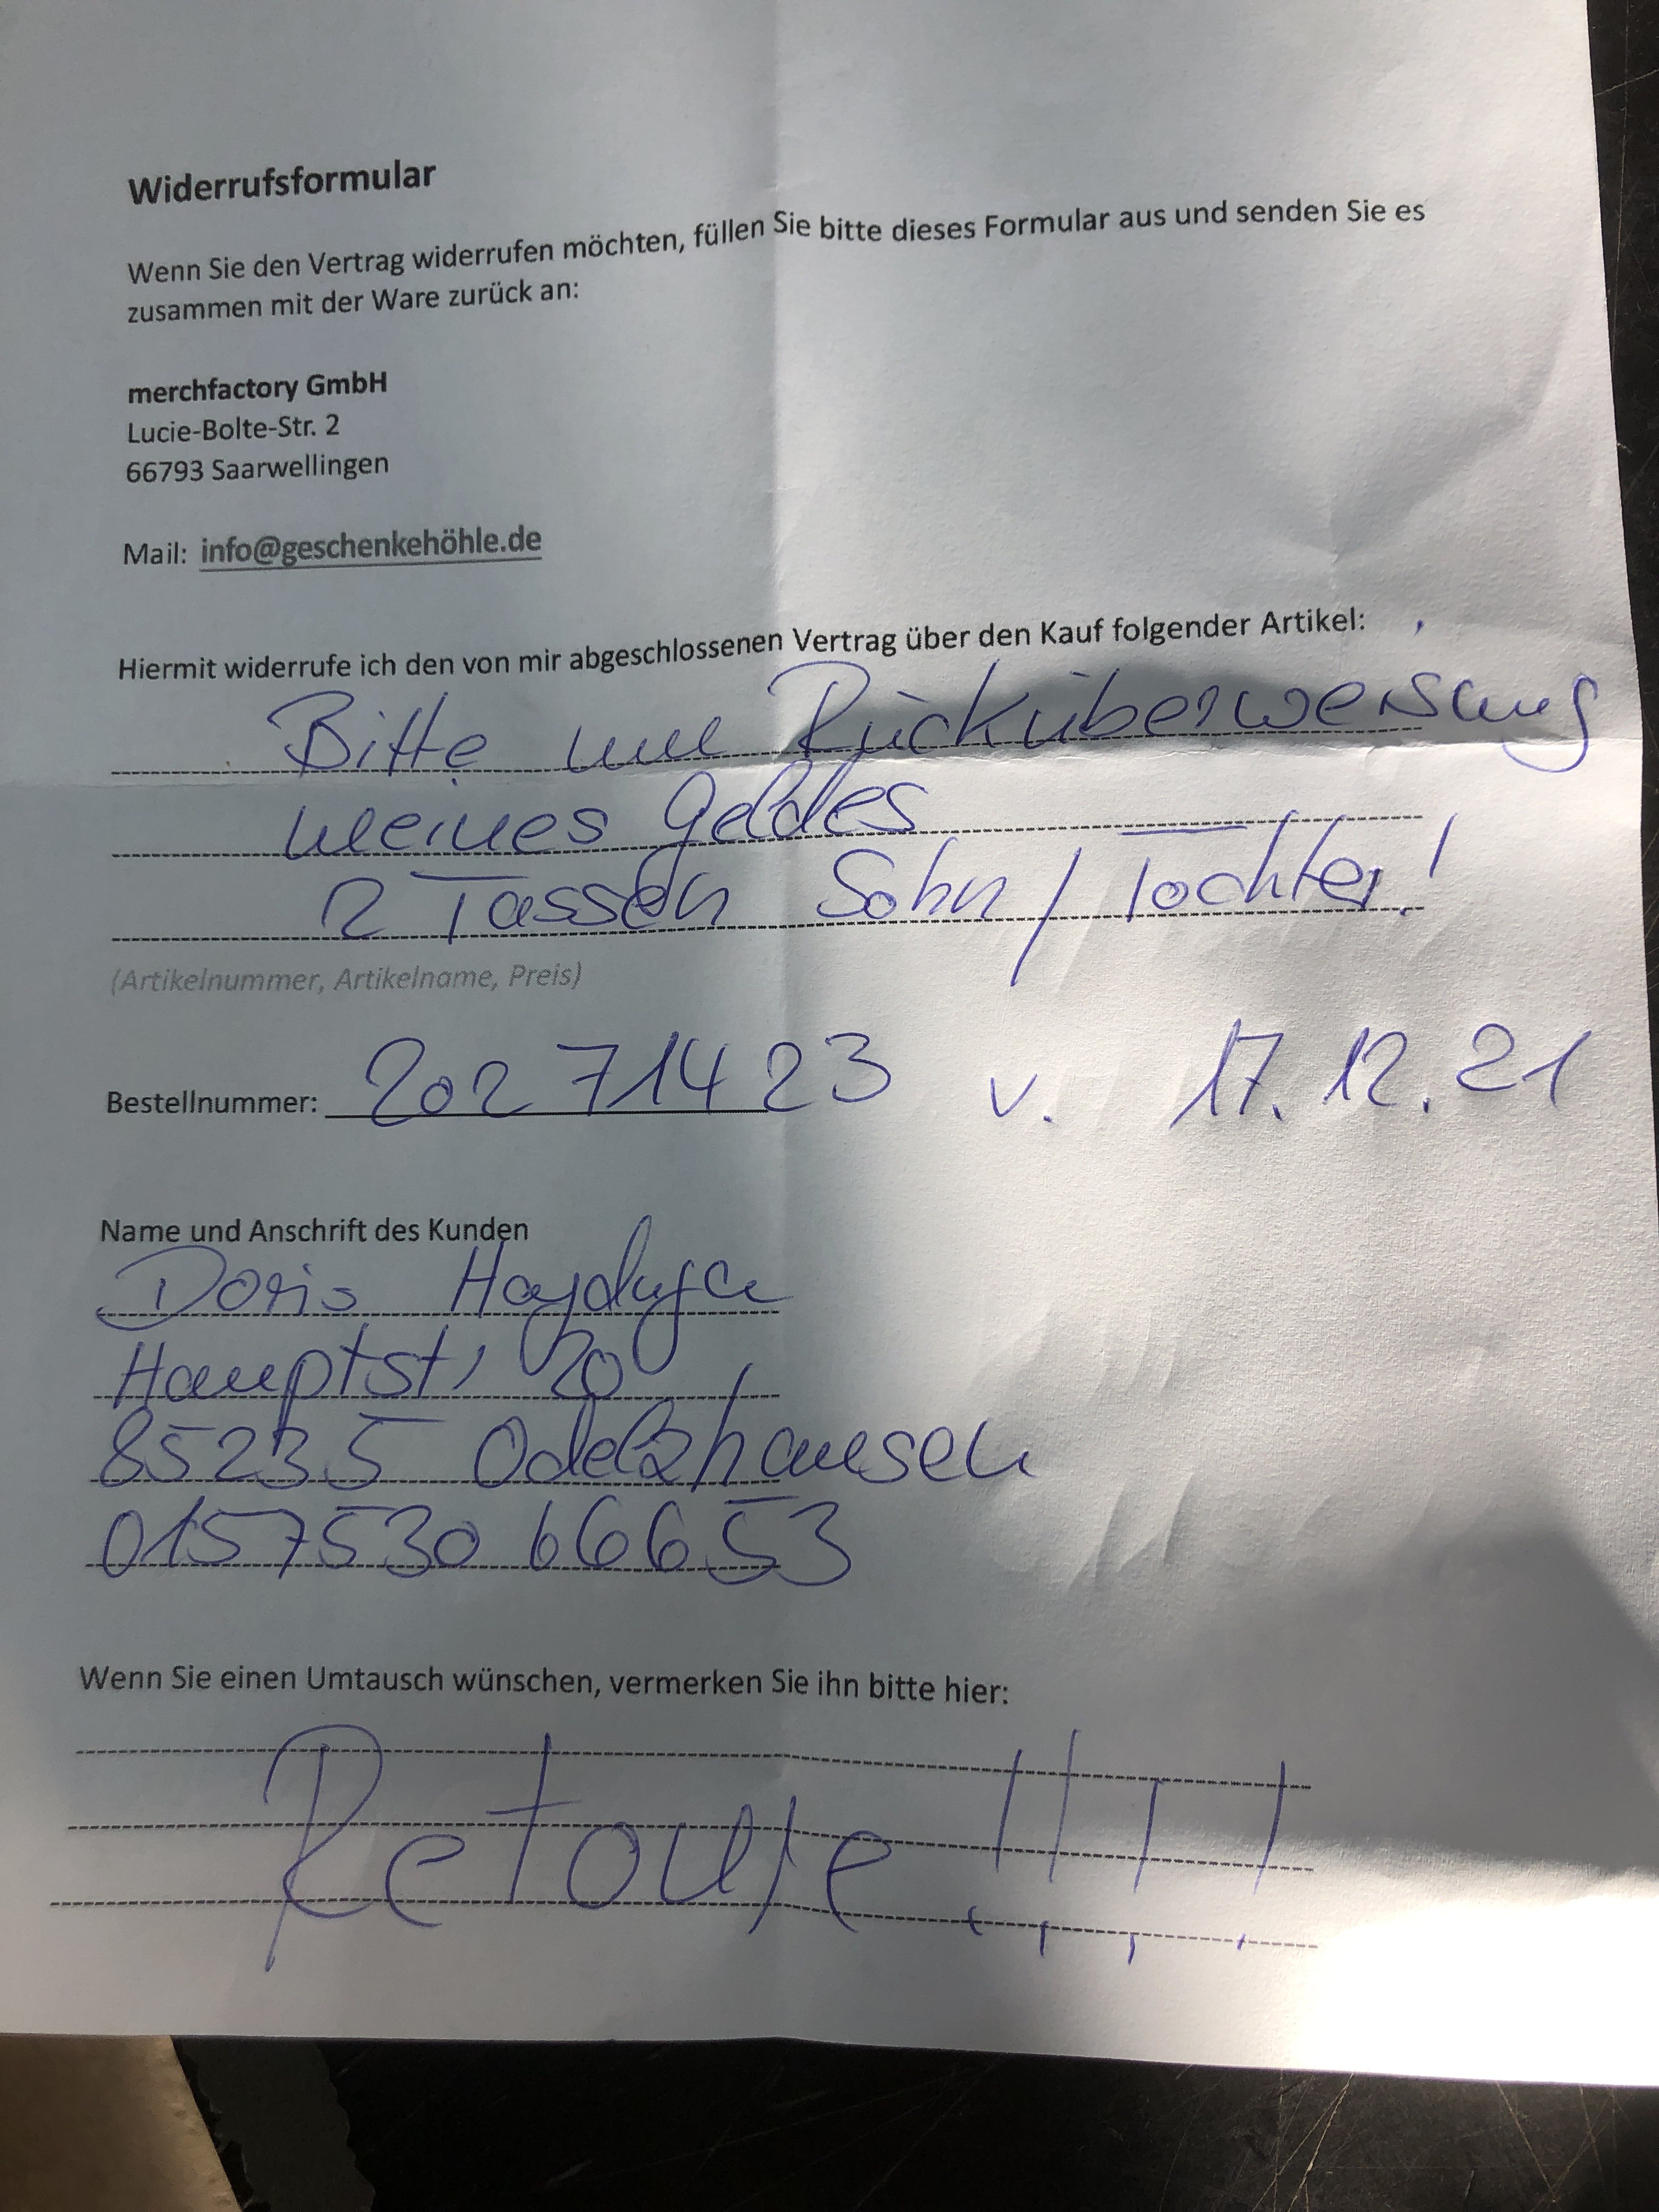 Widerrufsformular
Wenn Sie den Vertrag widerrufen möchten, füllen Sie bitte dieses Formular aus und senden Sie es
zusammen mit der Ware zurück an:
merchfactory GmbH
Lucie-Bolte-Str. 2
66793 Saarwellingen
Mail: info@geschenkehöhle.de
Hiermit widerrufe ich den von mir abgeschlossenen Vertrag über den Kauf folgender Artikel:
Bitte um Rücküberweisung
meines Geldes
2 Tassen Sohn / Tochter!
(Artikelnummer, Artikelname, Preis)
Bestellnummer: 202 714 23 v. 17.12.21
Name und Anschrift des Kunden
Doris
Hauptstr 20
85235 Odelzhausen
0157530 66653
Wenn Sie einen Umtausch wünschen, vermerken Sie ihn bitte hier:
Retoure !!!!